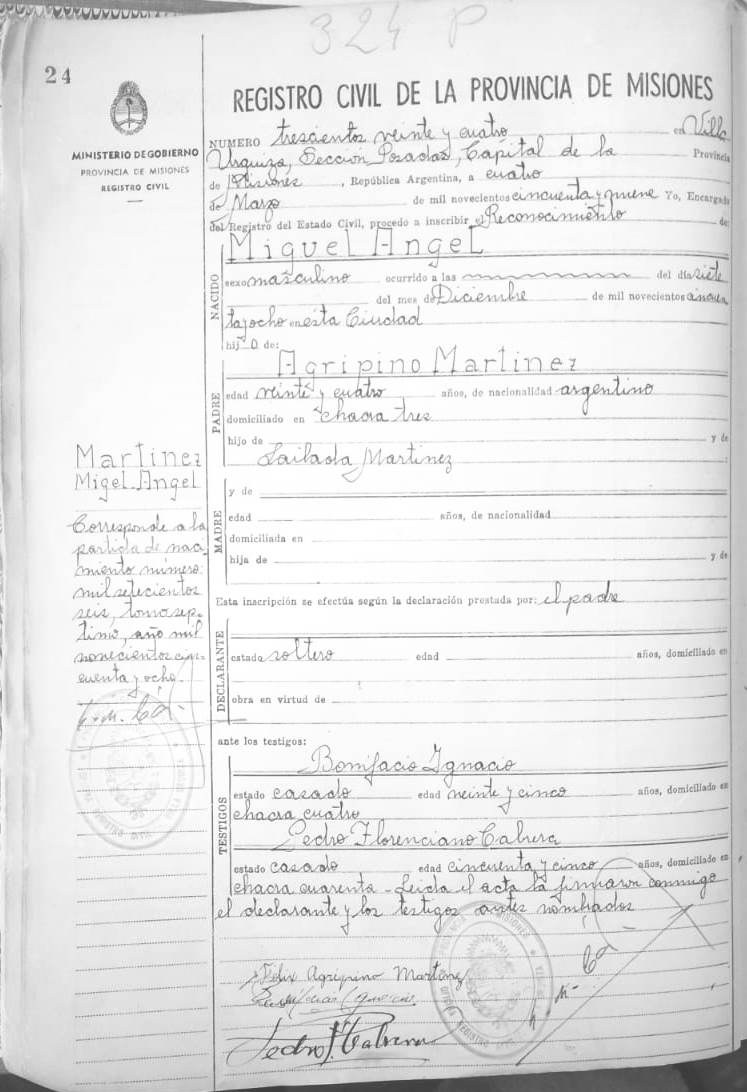 324 P
24
MINISTERIO DE GOBIERNO
PROVINCIA DE MISIONES
REGISTRO CIVIL
Martinez
Migel Angel
Corresponde a la
partida de naci
miento número:
mil setecientos
seis, tomo sep-
timo, año mil
novecientos cin-
cuenta y ocho.
REGISTRO CIVIL DE LA PROVINCIA DE MISIONES
NUMERO trescientos veinte y cuatro en Villa
Urquiza, Sección Posadas, Capital de la Provincia
de Misiones, República Argentina, a cuatro
de Marzo de mil novecientos cincuenta y nueve Yo, Encargado
del Registro del Estado Civil, procedo a inscribir el Reconocimiento de:
NACIDO
Miguel Angel
sexo masculino ocurrido a las del día siete
del mes de Diciembre de mil novecientos cincuen
taiocho en esta Ciudad
hij o de:
PADRE
Agripino Martinez
edad veinte y cuatro años, de nacionalidad argentino
domiciliado en chacra tres
hijo de y de
Martinez
MADRE
y de
edad años, de nacionalidad
domiciliada en
hija de y de
Esta inscripción se efectúa según la declaración prestada por: el padre
DECLARANTE
estado soltero edad años, domiciliado en
obra en virtud de
ante los testigos:
TESTIGOS
Bonifacio Ignacio
estado casado edad veinte y cinco años, domiciliado en
chacra cuatro
Pedro Florenciano Cabrera
estado casado edad cincuenta y cinco años, domiciliado en
chacra cuarenta - Leida el acta la firmaron conmigo
el declarante y los testigos antes nombrados
Felix Agripino Martinez
Pedro F. Cabrera